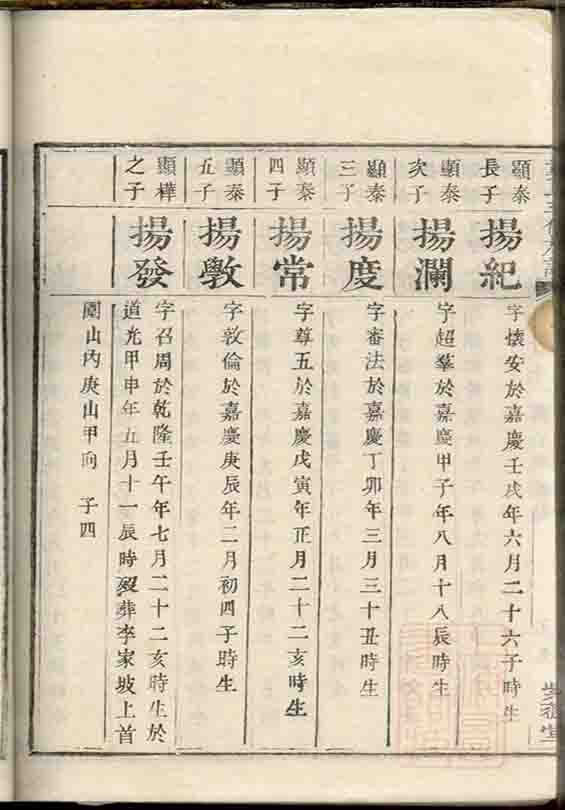 顯泰
長子
揚紀
字懷安於嘉慶壬戌年六月二十六子時生
顯泰
次子
揚瀾
字超羣於嘉慶甲子年八月十八辰時生
顯泰
三子
揚度
字審法於嘉慶丁卯年三月三十丑時生
顯泰
四子
揚常
字尊五於嘉慶戊寅年正月二十二亥時生
顯泰
五子
揚斆
字敦倫於嘉慶庚辰年二月初四子時生
顯樺
之子
揚發
字召周於乾隆壬午年七月二十二亥時生於
道光甲申年五月十一辰時歿葬李家坡上首
園山內庚山甲向 子四